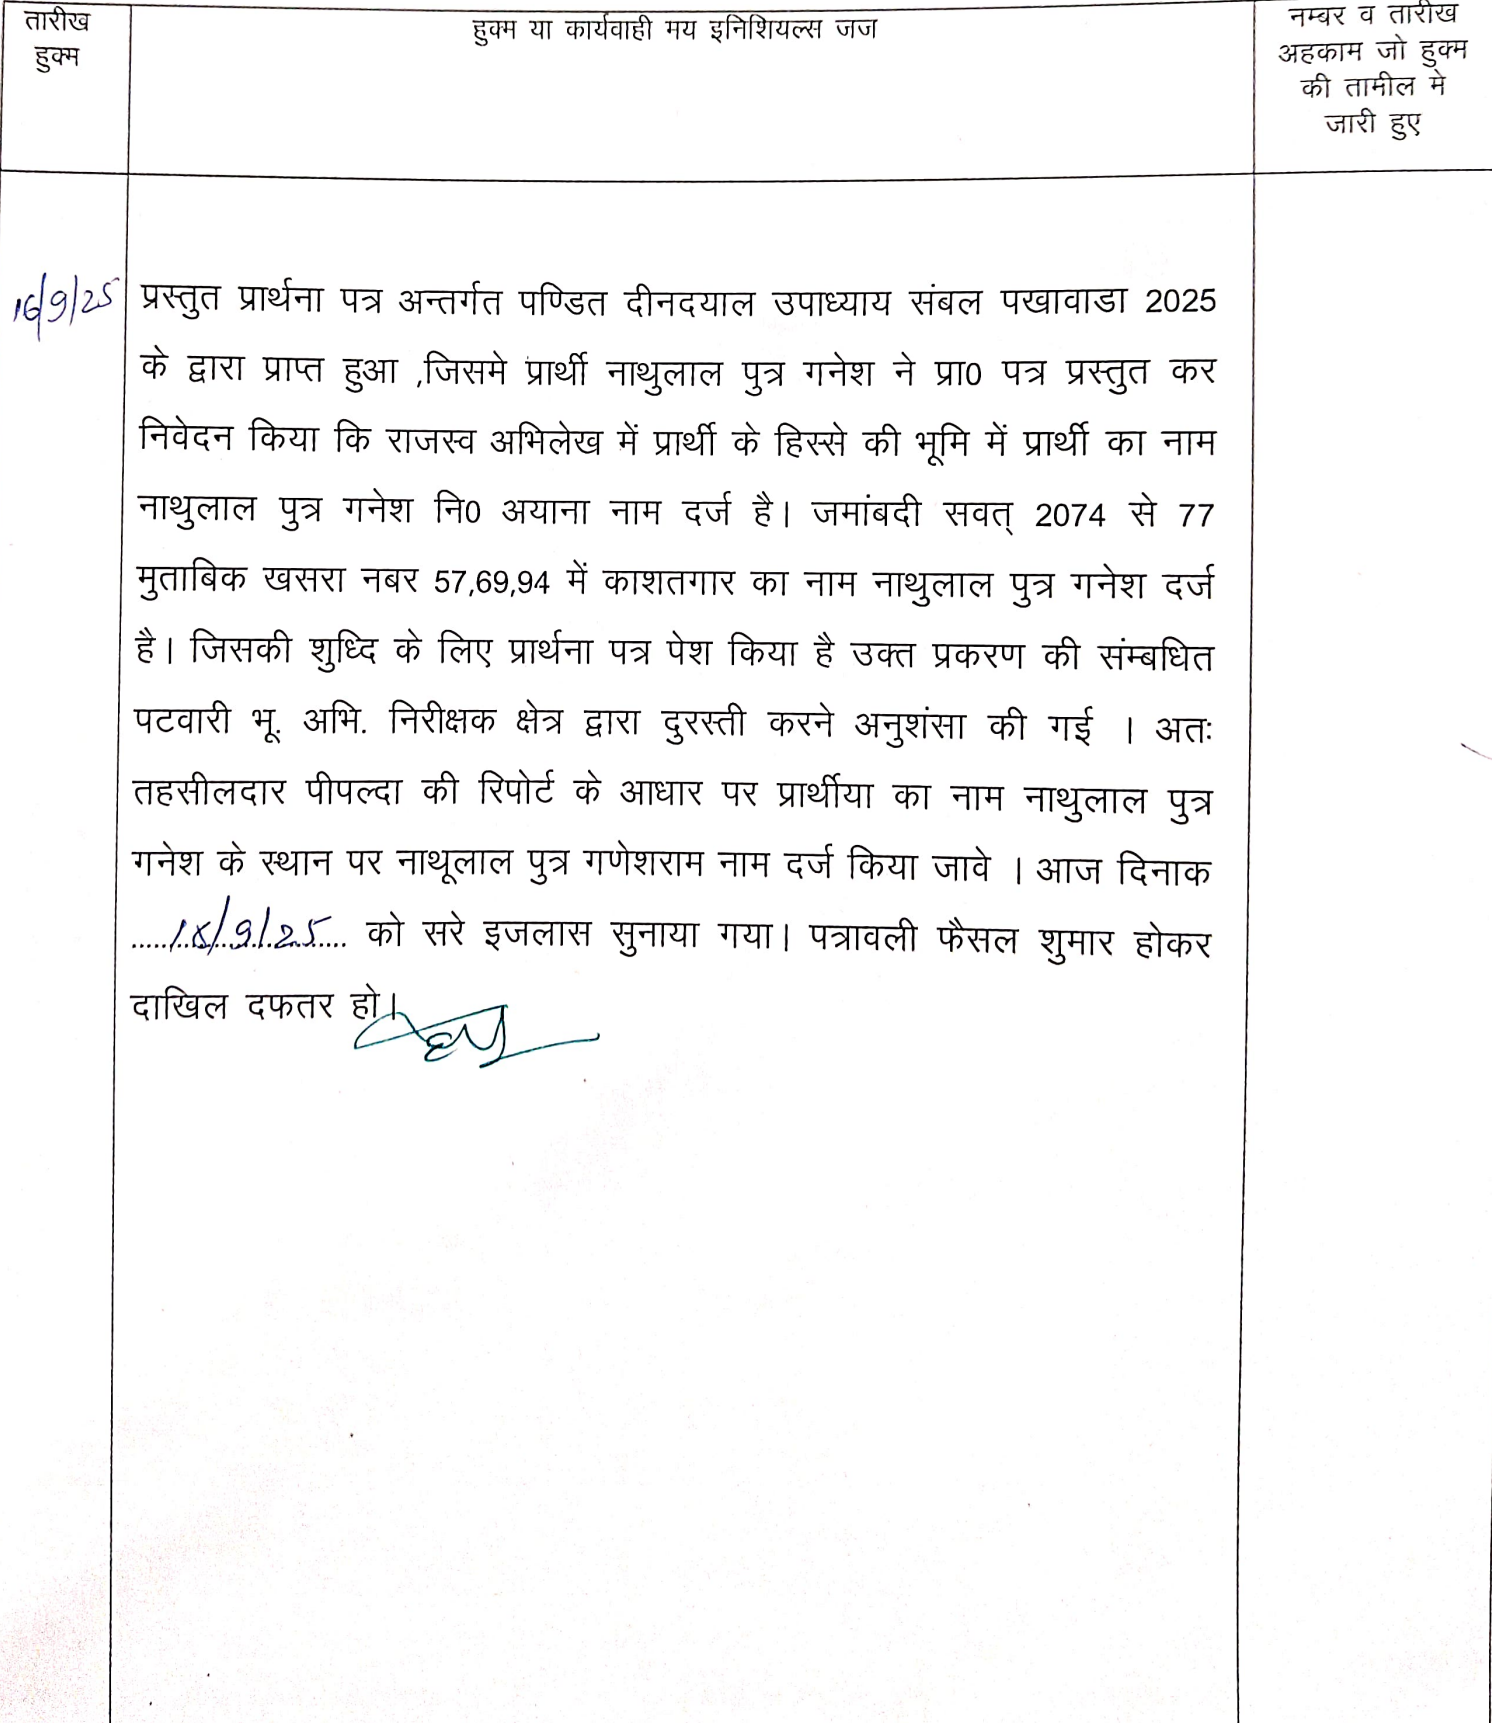 तारीख
हुक्म
हुक्म या कार्यवाही मय इनिशियल्स जज
नम्बर व तारीख
अहकाम जो हुक्म
की तामील मे
जारी हुए
16/9/25
प्रस्तुत प्रार्थना पत्र अन्तर्गत पण्डित दीनदयाल उपाध्याय संबल पखावाडा 2025
के द्वारा प्राप्त हुआ ,जिसमे प्रार्थी नाथुलाल पुत्र गनेश ने प्रा0 पत्र प्रस्तुत कर
निवेदन किया कि राजस्व अभिलेख में प्रार्थी के हिस्से की भूमि में प्रार्थी का नाम
नाथुलाल पुत्र गनेश नि0 अयाना नाम दर्ज है। जमांबदी सवत् 2074 से 77
मुताबिक खसरा नबर 57,69,94 में काशतगार का नाम नाथुलाल पुत्र गनेश दर्ज
है। जिसकी शुध्दि के लिए प्रार्थना पत्र पेश किया है उक्त प्रकरण की संम्बधित
पटवारी भू. अभि. निरीक्षक क्षेत्र द्वारा दुरस्ती करने अनुशंसा की गई । अतः
तहसीलदार पीपल्दा की रिपोर्ट के आधार पर प्रार्थीया का नाम नाथुलाल पुत्र
गनेश के स्थान पर नाथूलाल पुत्र गणेशराम नाम दर्ज किया जावे । आज दिनाक
को सरे इजलास सुनाया गया। पत्रावली फैसल शुमार होकर
दाखिल दफतर हो।